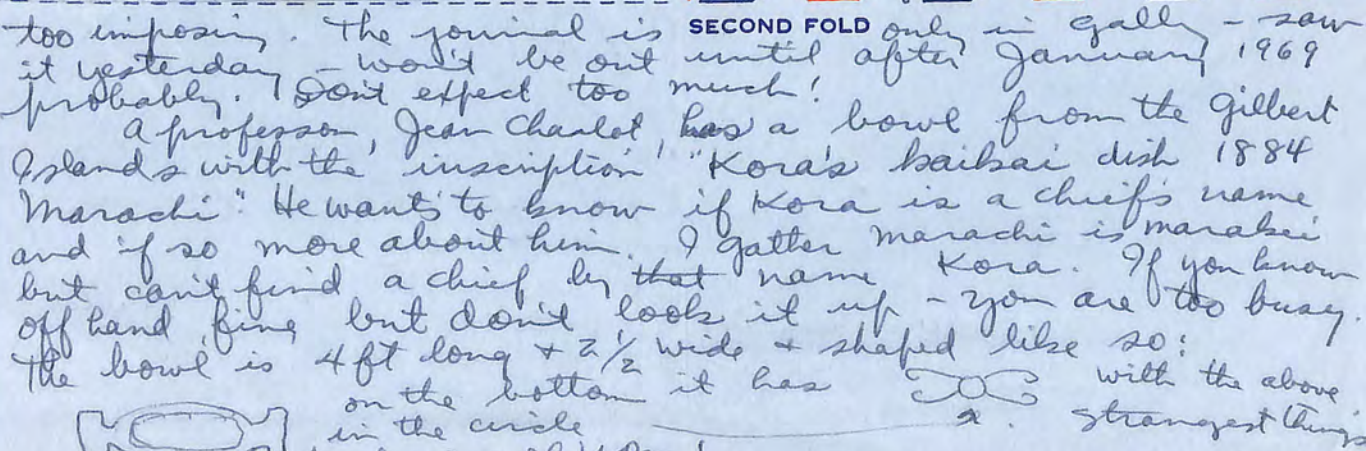 too imposing. The journal is SECOND FOLD only in gally - saw
it yesterday - won't be out until after January 1969
probably. Don't expect too much!
A professor, Jean Charlot, has a bowl from the Gilbert
Islands with the inscription "Kora's kaikai dish 1884
Marachi". He wants to know if Kora is a chief's name
and if so more about him. I gather Marachi is Marakei
but can't find a chief by that name Kora. If you know
off hand fine but don't look it up - you are too busy.
The bowl is 4 ft long + 2 1/2 wide + shaped like so:
on the bottom it has with the above
in the circle strangest things